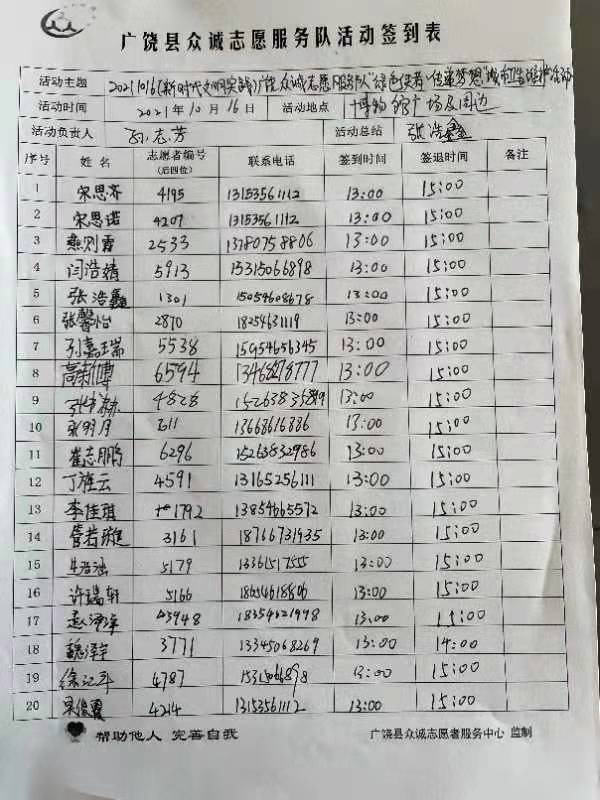 广饶县众诚志愿服务队活动签到表
活动主题 2021.10.16《新时代文明实践》广饶众诚志愿服务队"绿色使者 传递梦想"城市
活动时间 2021年10月16日 活动地点 博物馆广场及周边
活动负责人 孙志芳 活动总结 张浩鑫
序号 姓名 志愿者编号(后四位) 联系电话 签到时间 签退时间 备注
1 宋思齐 4195 13153561112 13:00 15:00
2 宋思诺 4207 13153561112 13:00 15:00
3 燕则霄 2533 13780758806 13:00 15:00
4 闫浩婧 5913 15315066898 13:00 15:00
5 张浩鑫 1301 15054608678 13:00 15:00
6 张馨怡 2870 18254631119 13:00 15:00
7 孙嘉瑞 5538 15954656345 13:00 15:00
8 高新博 6594 13:00 15:00
9 4828 13:00 15:00
10 13668616886 13:00 15:00
11 崔志鹏 6296 15263832986 13:00 15:00
12 丁维云 4591 13165256111 13:00 15:00
13 李佳琪 1792 13854665572 13:00 15:00
14 管若璇 3161 18766731935 13:00 15:00
15 5179 13361517555 13:00 15:00
16 许瑞轩 5166 18654618806 13:00 15:00
17 3948 13:00 15:00
18 魏泽宇 3771 13345068269 13:00 14:00
19 4787 15315066898 13:00 15:00
20 4214 13153561112 13:00 15:00
帮助他人 完善自我 广饶县众诚志愿者服务中心 监制